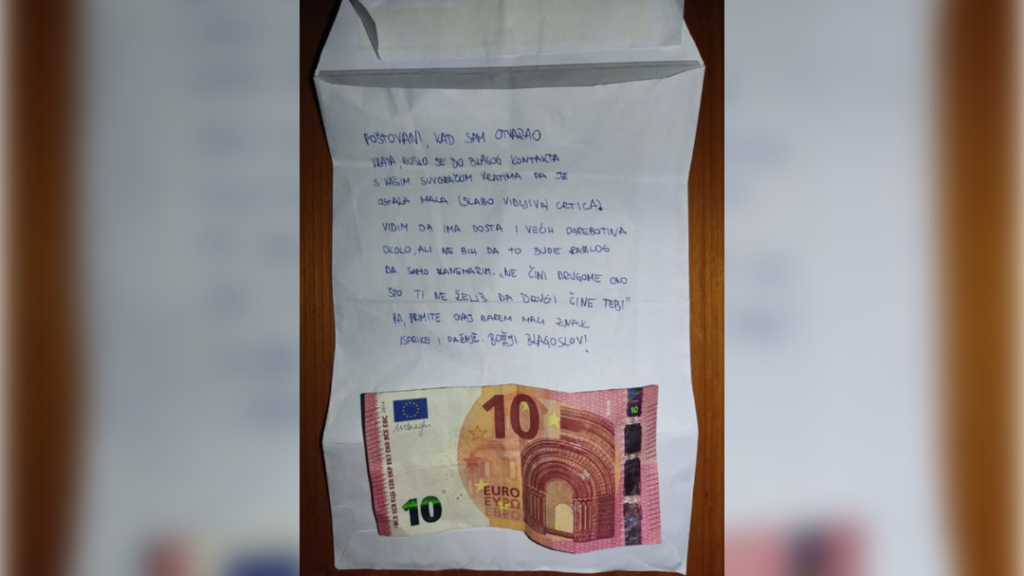 POŠTOVANI, KAD SAM OTVARAO
VRATA, DOŠLO JE DO BLAGOG KONTAKTA
S VAŠIM SUVOZAČKIM VRATIMA DA JE
OSTALA MALA (SLABO VIDLJIVA) CRTICA.
VIDIM DA IMA DOSTA I VEĆIH OGREBOTINA
OKOLO, ALI NE BIH DA TO BUDE RAZLOG
DA SAMO ZANEMARIM. „NE ČINI DRUGOME ONO
ŠTO TI NE ŽELIŠ DA DRUGI ČINE TEBI"
PA, PRIMITE OVAJ BAREM MALI ZNAK
ISPRIKE I PAŽNJE. BOŽJI BLAGOSLOV!
10
10
EURO
ΕΥΡΩ
ЕВРО
10